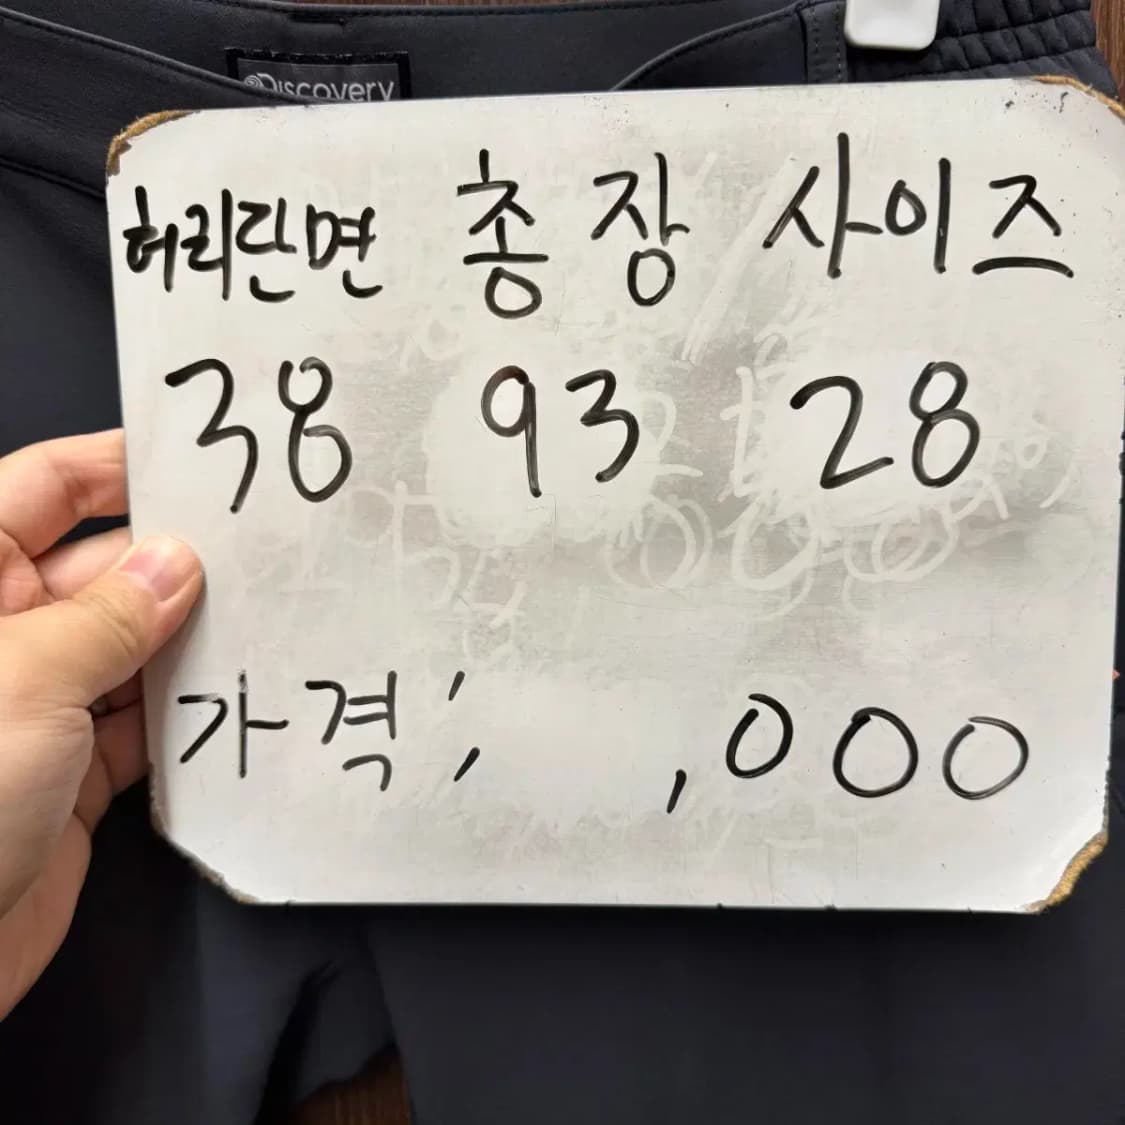 Discovery
허리단면 총장 사이즈
38 93 28
가격: ,000